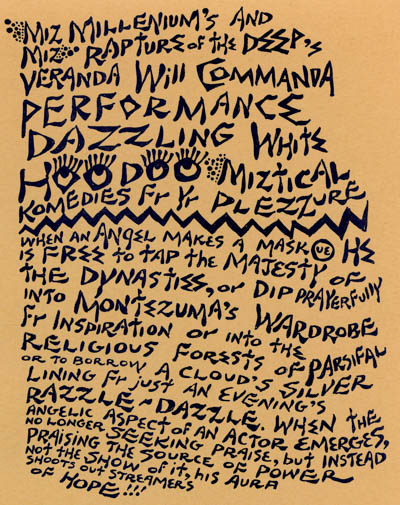 MIZ MILLENIUM'S AND
MIZ RAPTURE OF THE DEEP'S
VERANDA WILL COMMANDA
PERFORMANCE
DAZZLING WHITE
HOODOO MIZTICAL
KOMEDIES FR YR PLEZZURE
WHEN AN ANGEL MAKES A MASK (UE) HE
IS FREE TO TAP THE MAJESTY OF
THE DYNASTIES, OR DIP PRAYERFULLY
INTO MONTEZUMA'S WARDROBE
FR INSPIRATION OR INTO THE
RELIGIOUS FORESTS OF PARSIFAL
OR TO BORROW A CLOUD'S SILVER
LINING FR JUST AN EVENING'S
RAZZLE-DAZZLE. WHEN THE
ANGELIC ASPECT OF AN ACTOR EMERGES,
NO LONGER SEEKING PRAISE, BUT INSTEAD
PRAISING THE SOURCE OF POWER
NOT THE SHOW OF IT, HIS AURA
SHOOTS OUT STREAMERS
OF HOPE!!!!